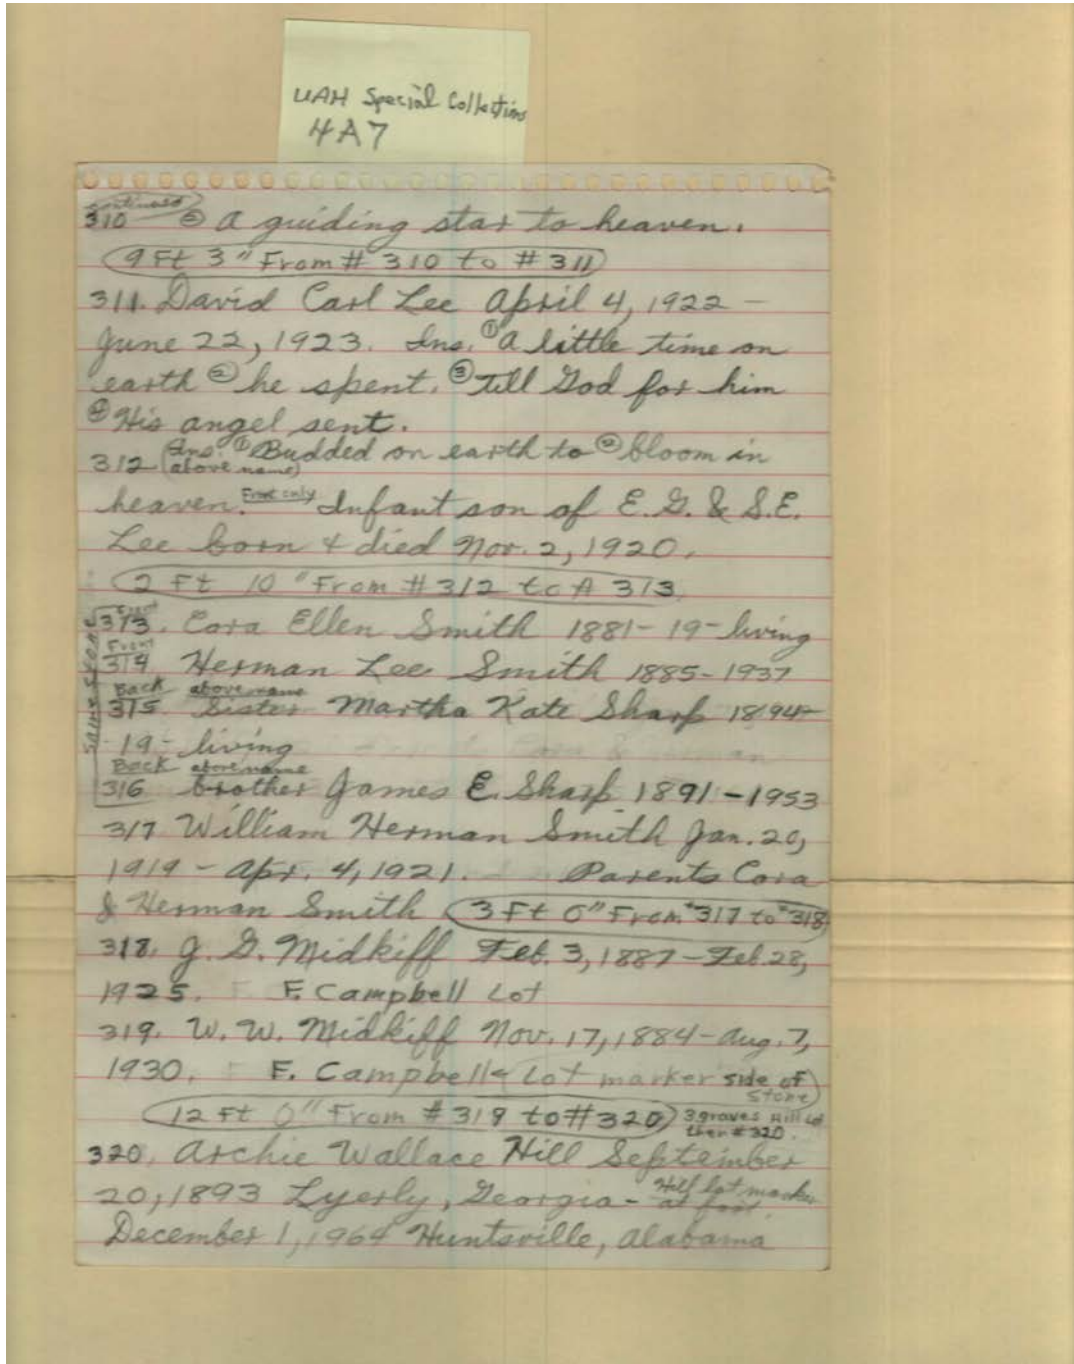 UAH Special Collections
4A7
continued
310 ② A guiding star to heaven.
9 Ft 3" From # 310 to # 311
311. David Carl Lee April 4, 1922 -
June 22, 1923. Ins. ① A little time on
earth ② he spent. ③ Till God for him
④ His angel sent.
312 (Ins. above name) ① Budded on earth to ② bloom in
heaven. Front only Infant son of E. G. & S.E.
Lee born & died Nov. 2, 1920.
2 Ft 10" From # 312 to # 313
Same Stone
Front
313. Cora Ellen Smith 1881- 19- living
Front
314. Herman Lee Smith 1885-1937
Back above name
315. Sister Martha Kate Sharp 1894-
19- living
Back above name
316 brother James E. Sharp 1891-1953
317 William Herman Smith Jan. 20,
1919 - Apr. 4, 1921. Parents Cora
& Herman Smith 3 Ft 0" From #317 to #318
318. J. G. Midkiff Feb. 3, 1887-Feb. 28,
1925. F. Campbell Lot
319. W. W. Midkiff Nov. 17, 1884-Aug. 7,
1930. F. Campbell Lot marker side of
Stone
12 Ft 0" From # 319 to # 320 3 graves Hill Lot
then # 320.
320. Archie Wallace Hill September
20, 1893 Lyerly, Georgia - Hill lot marker
at foot.
December 1, 1964 Huntsville, Alabama